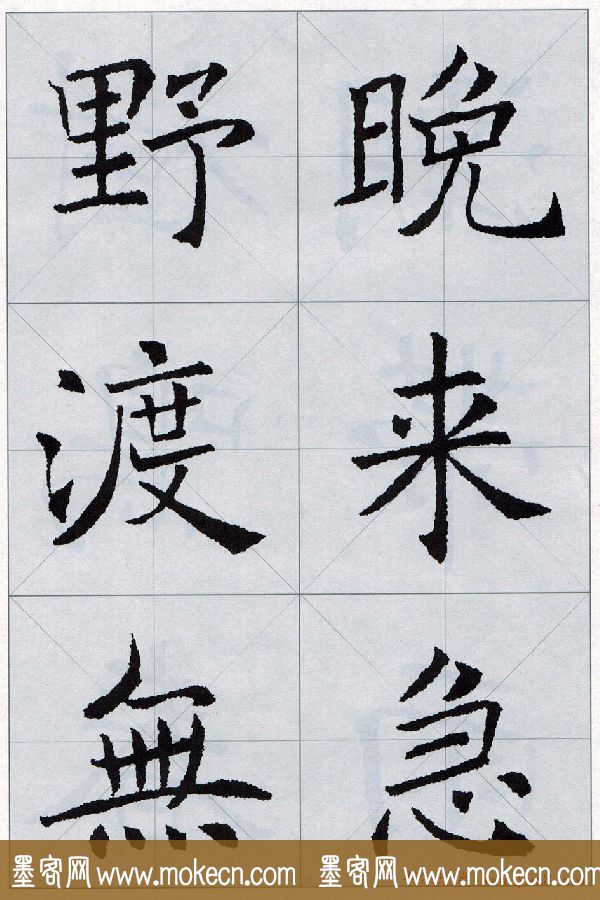 晚来急
野渡無
墨客网 www.mokecn.com 墨客网 www.mokecn.com